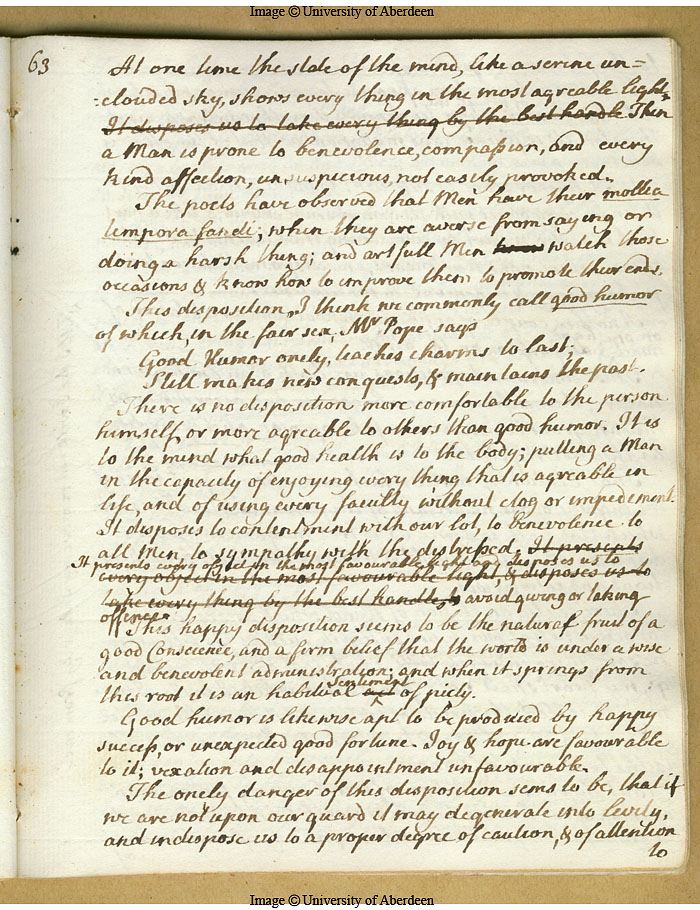 Image © University of Aberdeen
63
At one time the state of the mind, like a serene un=
=clouded sky, shows every thing in the most agreable light.
It disposes us to take every thing by the best handle Then
a Man is prone to benevolence, compassion, and every
kind affection, unsuspicious, not easily provoked.
The poets have observed that Men have their mollia
tempora fandi; when they are averse from saying or
doing a harsh thing; and artfull Men know watch those
occasions & know how to improve them to promote their ends.
This disposition, I think we commonly call good humor
of which, in the fair sex, Mr Pope says
Good Humor onely, teaches charms to last,
Still makes new conquests, & maintains the past.
There is no disposition more comfortable to the person
himself, or more agreable to others than good humor. It is
to the mind what good health is to the body; putting a Man
in the capacity of enjoying every thing that is agreable in
life, and of using every faculty without clog or impediment.
It disposes to contentment with our lot, to benevolence to
all Men, to sympathy with the distressed. It presents
It presents every object in the most favourable light and disposes us to
every object in the most favourable light, & disposes us to
take every thing by the best handle, to avoid giving or taking
offence.
This happy disposition seems to be the natural fruit of a
good Conscience, and a firm belief that the world is under a wise
and benevolent administration; and when it springs from
sentiment
this root it is an habitual act of piety.
Good humor is likewise apt to be produced by happy
success, or unexpected good fortune. Joy & hope are favourable
to it; vexation and disappointment unfavourable.
The onely danger of this disposition sems to be, that if
we are not upon our guard it may degenerate into levity,
and indispose us to a proper degree of caution, & of attention
to
Image © University of Aberdeen